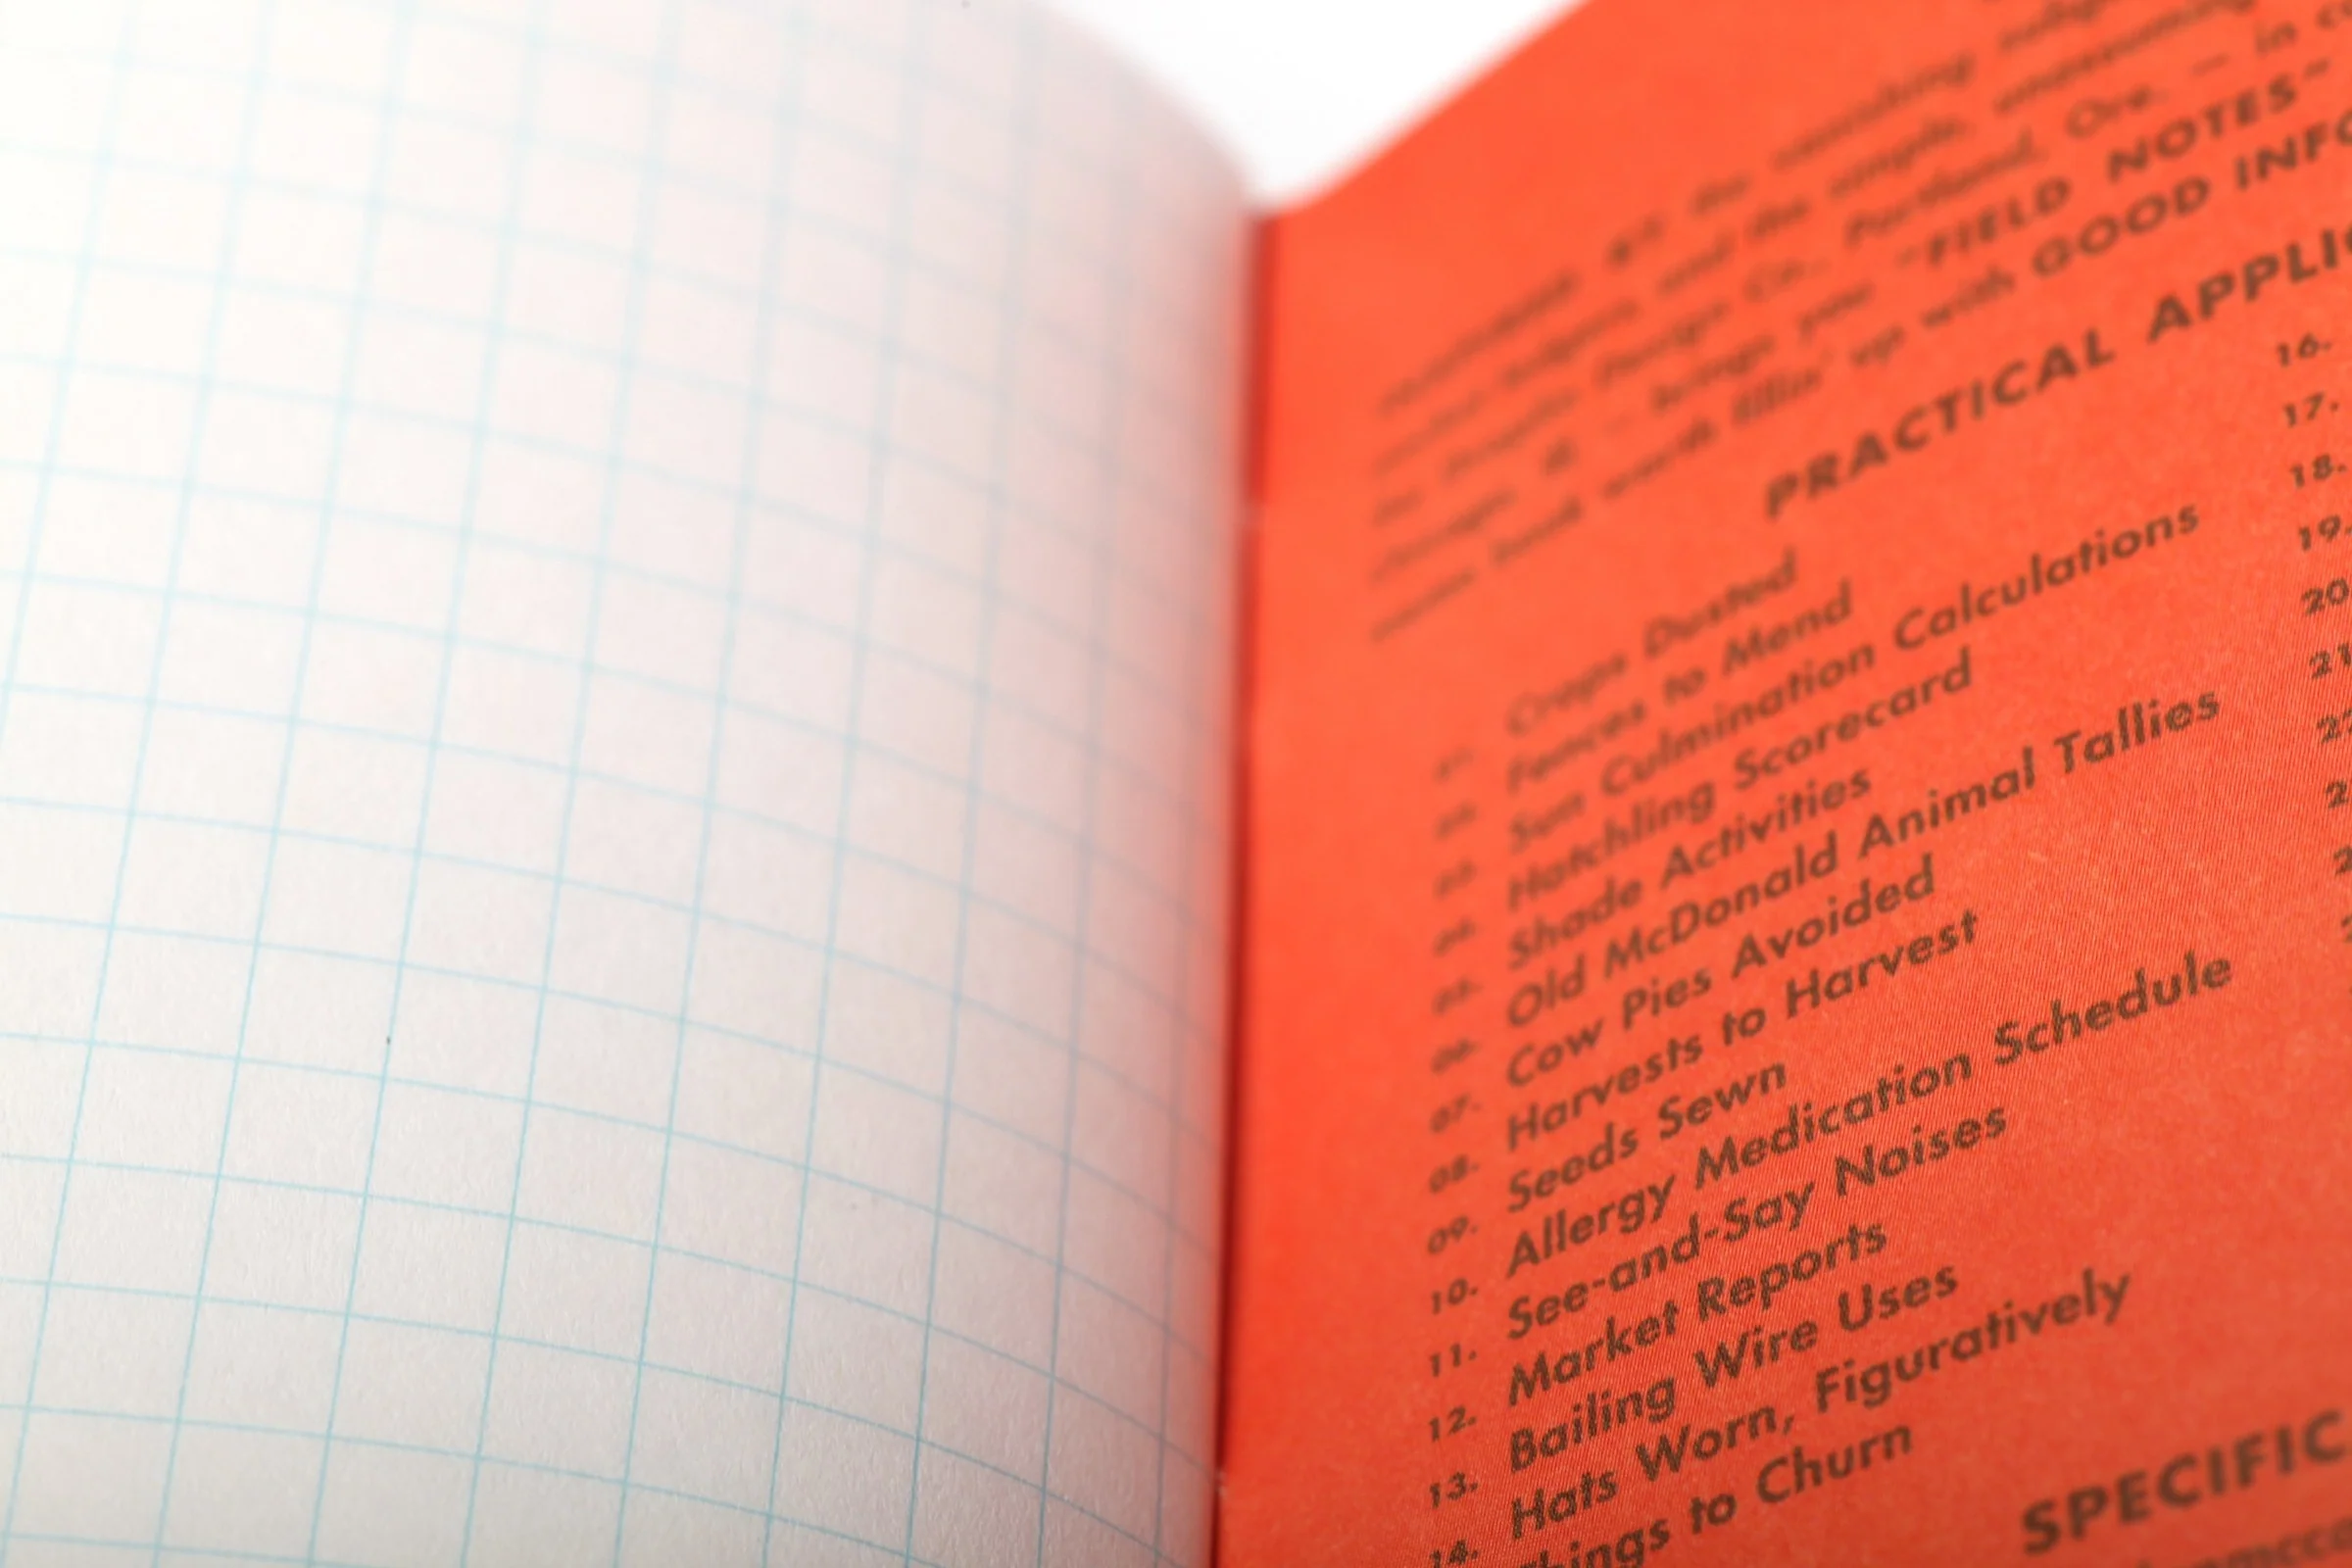 the vanishing
and the simple, unassuming
Design Co., Portland, Ore. – in co
brings you "FIELD NOTES"
worth fillin' up with GOOD INFO
PRACTICAL APPLIC
Crops Dusted
Fences to Mend
Sun Culmination Calculations
Hatchling Scorecard
05. Shade Activities
06. Old McDonald Animal Tallies
07. Cow Pies Avoided
08. Harvests to Harvest
09. Seeds Sewn
10. Allergy Medication Schedule
11. See-and-Say Noises
12. Market Reports
13. Bailing Wire Uses
14. Hats Worn, Figuratively
hings to Churn
16.
17.
18.
19.
20
21
SPECIFIC